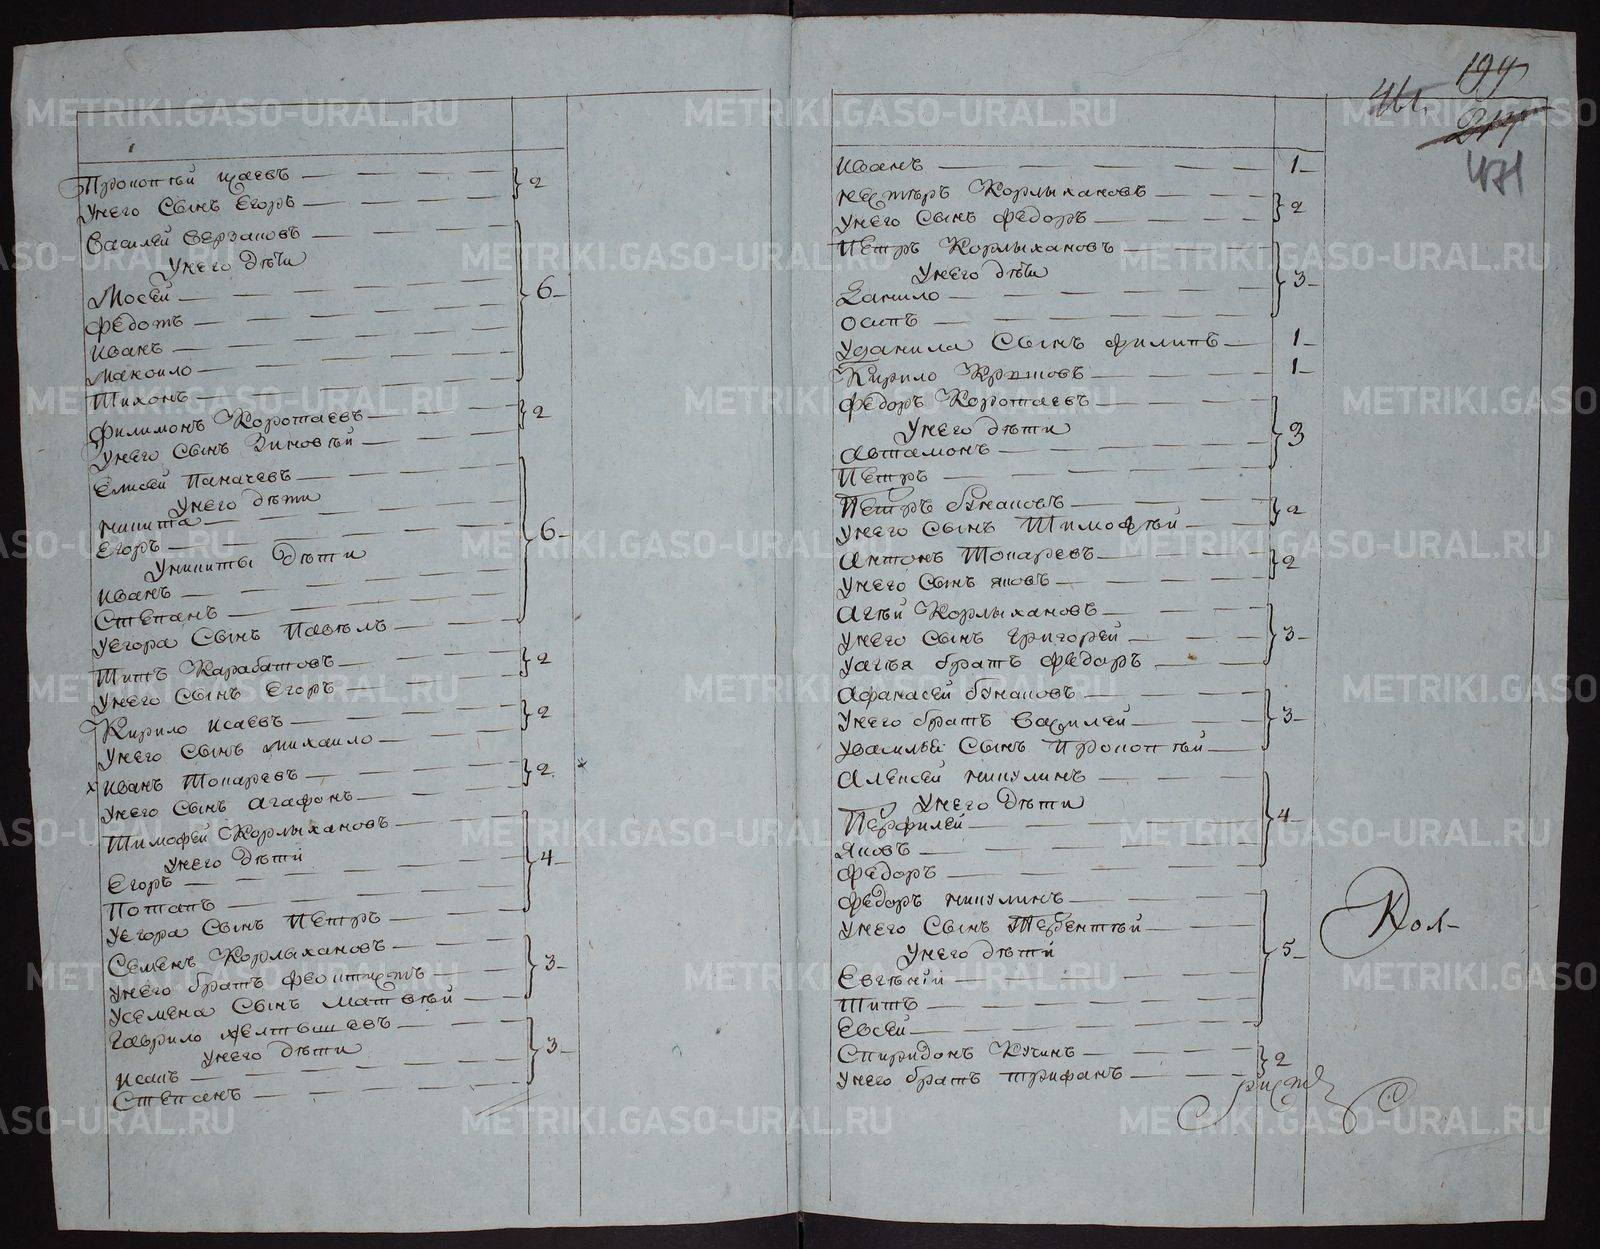 Прокопѣй щаевъ 2
Унего Сынъ Егоръ
Василей Берзановъ
Унего Дѣти
Мосей 6
Федотъ
Иванъ
Макоило
Тихонъ
Филимонъ Коротаевъ 2
Унего Сынъ Зиновѣй
Елисей Паначевъ
Унего дѣти
Никита
Егоръ 6
Уникиты Дѣти
Иванъ
Степанъ
Уегора Сынъ Павѣлъ
Титъ Карабатовъ 2
Унего Сынъ Егоръ
Кирило Исаевъ 2
Унего Сынъ Михаило
х Иванъ Топаревъ 2
Унего Сынъ Агафонъ
Тимофей Корлыхановъ
Унего Дѣти
Егоръ 4
Потапъ
Уегора Сынъ Петръ
Семенъ Корлыхановъ
Унего братъ Феоктистъ 3
Усемена Сынъ Матвѣй
Гаврило Желтышевъ
Унего дѣти 3
Исакъ
Степанъ
194
461.
217
471
Иванъ 1
Нестеръ Корлыхановъ 2
Унего Сынъ Федоръ
Петръ Корлыхановъ
Унего дѣти
Данило 3
Осипъ
Уданила Сынъ Филипъ 1
Кирило Кротовъ 1
Федоръ Коротаевъ
Унего дѣти 3
Автамонъ
Петръ
Петръ Букановъ 2
Унего Сынъ Тимофѣй
Антонъ Топаревъ 2
Унего Сынъ Яковъ
Агѣй Корлыхановъ
Унего Сынъ Григорей 3
Уагѣя братъ Федоръ
Афанасей Букановъ
Унего братъ Василей 3
Увасилья Сынъ Прокопѣй
Алексей Никулинъ
Унего Дѣти
Перфилей 4
Яковъ
Федоръ
Федоръ Никулинъ
Унего Сынъ Терентѣй
Унего дѣти 5
Евгѣній
Титъ
Евсей
Спиридонъ Кучинъ 2
Унего братъ Трифанъ
Кол-